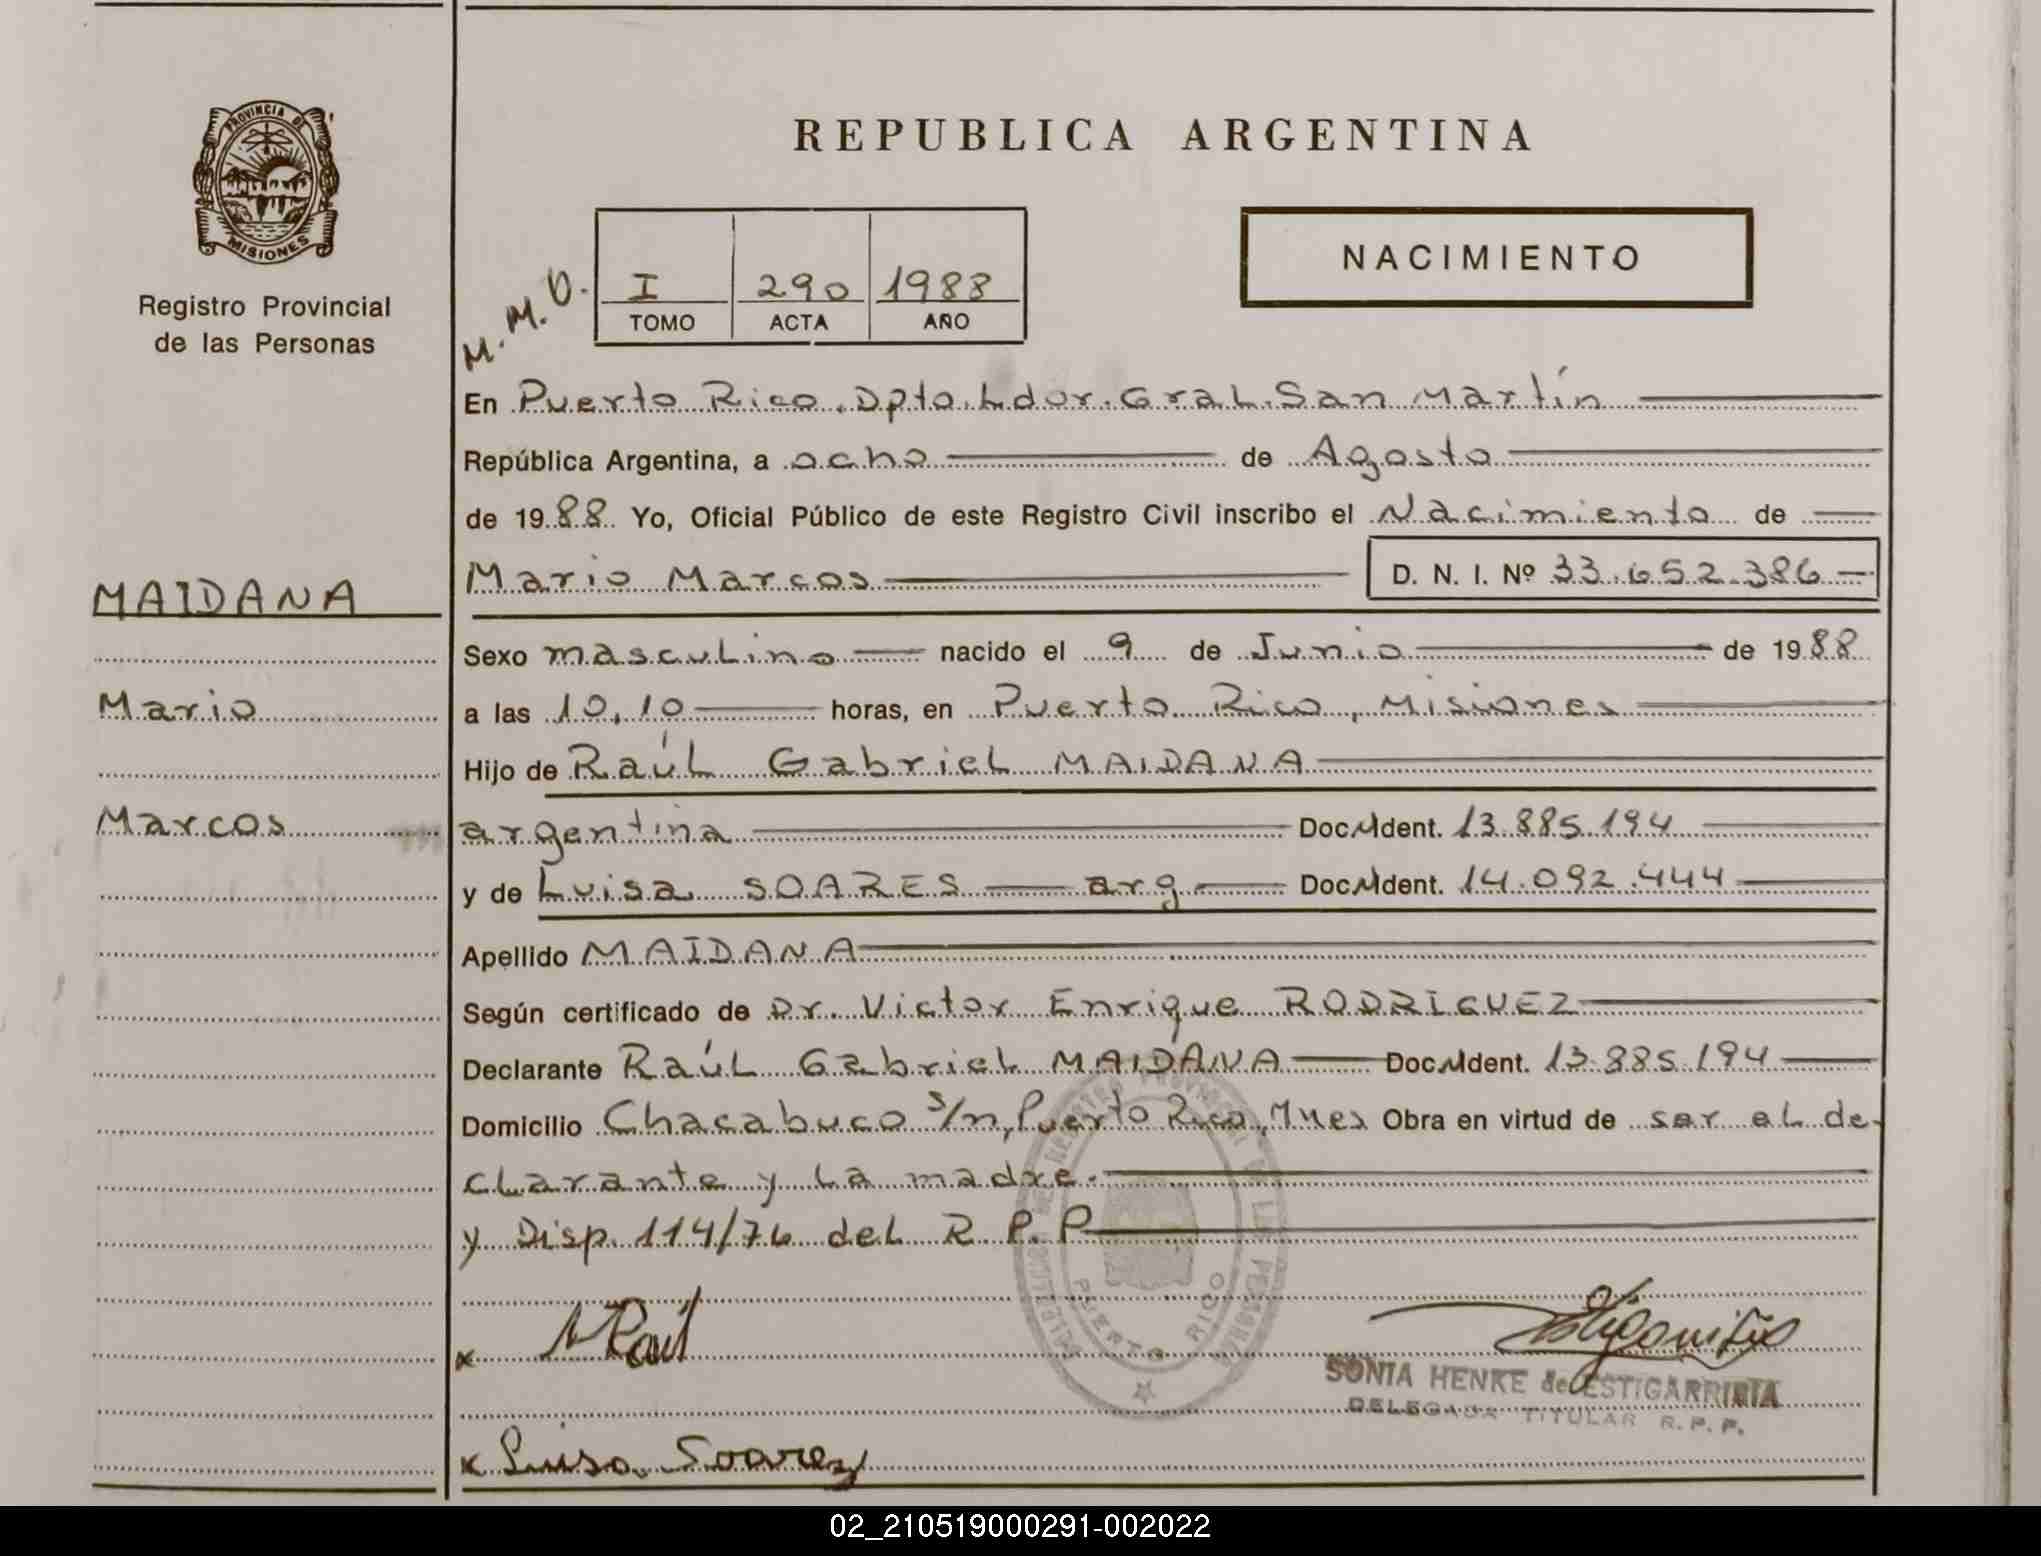 REPUBLICA ARGENTINA
PROVINCIA DE
MISIONES
Registro Provincial
de las Personas
NACIMIENTO
M. M. D.
I 290 1988
TOMO ACTA AÑO
En Puerto Rico, Dpto. Ldor. Gral. San Martín
República Argentina, a ocho de Agosto
de 1988 Yo, Oficial Público de este Registro Civil inscribo el Nacimiento de
Mario Marcos D. N. I. Nº 33.652.386
MAIDANA
Mario
Marcos
Sexo masculino nacido el 9 de Junio de 1988
a las 10,10 horas, en Puerto Rico, Misiones
Hijo de Raúl Gabriel MAIDANA
argentina Doc. Ident. 13.885.194
y de Luisa SOARES arg Doc. Ident. 14.092.444
Apellido MAIDANA
Según certificado de Dr. Victor Enrique RODRIGUEZ
Declarante Raúl Gabriel MAIDANA Doc. Ident. 13.885.194
Domicilio Chacabuco s/n, Puerto Rico, Mnes Obra en virtud de ser el de-
clarante y la madre.
y Disp. 114/76 del R. P. P
PUERTO RICO
x Raúl
SONIA HENKE de ESTIGARRIBIA
DELEGADA TITULAR R. P. P.
x Luisa Soarez
02_210519000291-002022